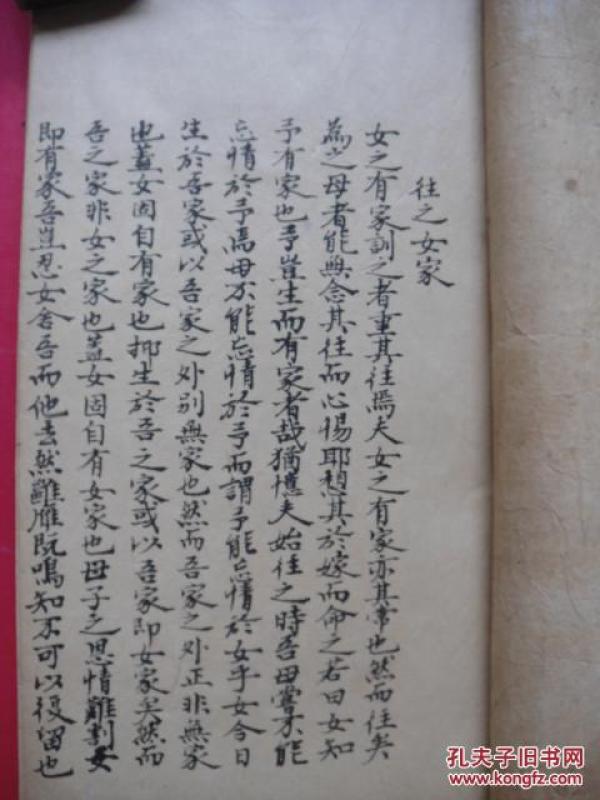 往之女家
女之有家訓之者重其往焉夫女之有家亦其常也然而往矣
為之母者能無念其往而心惕耶想其於嫁而命之若曰女知
予有家也予豈生而有家者哉猶憶夫始往之時吾母嘗不能
忘情於予焉母不能忘情於予而謂予能忘情於女乎女今日
生於吾家或以吾家之外別無家也然而吾家之外正非無家
也蓋女固自有家也抑生於吾之家或以吾家即女家矣然而
吾之家非女之家也蓋女固自有女家也母子之恩情難割女
即有家吾豈忍女舍吾而他去然雝雁既鳴知不可以復留也
孔夫子旧书网
www.kongfz.com